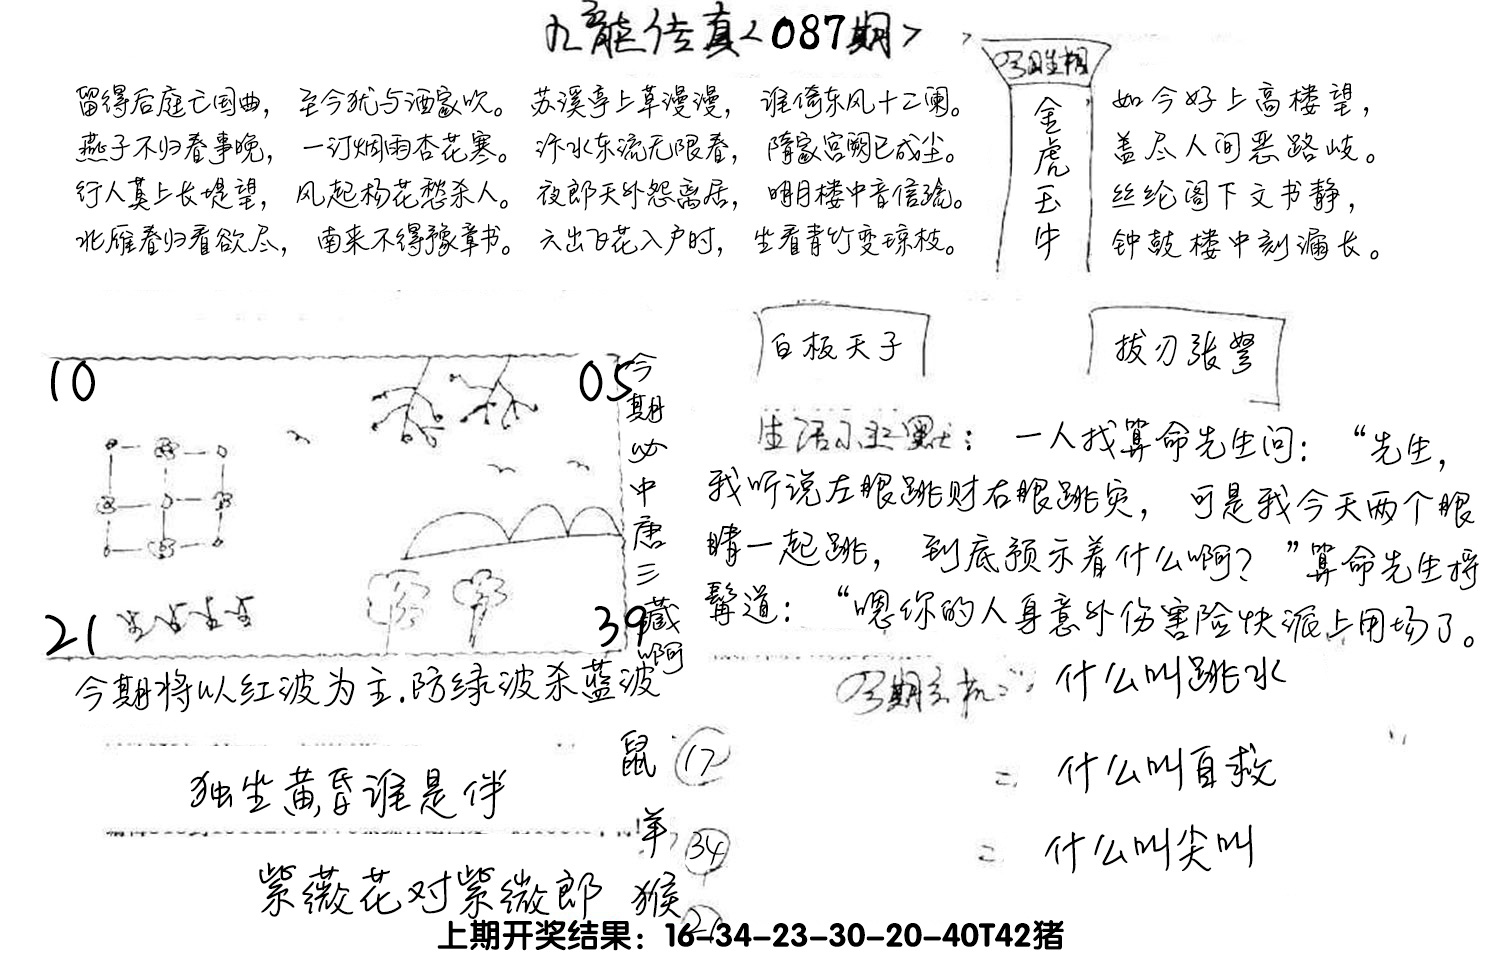 九龙传真<087期>
今日生相
金虎玉牛
留得后庭亡国曲， 至今犹与酒家吹。 苏溪亭上草漫漫， 谁倚东风十二阑。
燕子不归春事晚， 一汀烟雨杏花寒。 汴水东流无限春， 隋家宫阙已成尘。
行人莫上长堤望， 风起杨花愁杀人。 夜郎天外怨离居， 明月楼中音信疏。
北雁春归看欲尽， 南来不得豫章书。 六出飞花入户时， 坐看青竹变琼枝。
如今好上高楼望，
盖尽人间恶路岐。
丝纶阁下文书静，
钟鼓楼中刻漏长。
白板天子
拔刃张弩
10
05
21
39
今期必中唐三藏啊
生活小幽默： 一人找算命先生问： “先生，
我听说左眼跳财右眼跳灾， 可是我今天两个眼
睛一起跳， 到底预示着什么啊？”算命先生捋
髯道： “嗯你的人身意外伤害险快派上用场了。
今期将以红波为主.防绿波杀蓝波
今期玄机： 什么叫跳水
= 什么叫自救
= 什么叫尖叫
独坐黄昏谁是伴
紫薇花对紫微郎
鼠 17
羊 34
猴
上期开奖结果：16-34-23-30-20-40T42猪